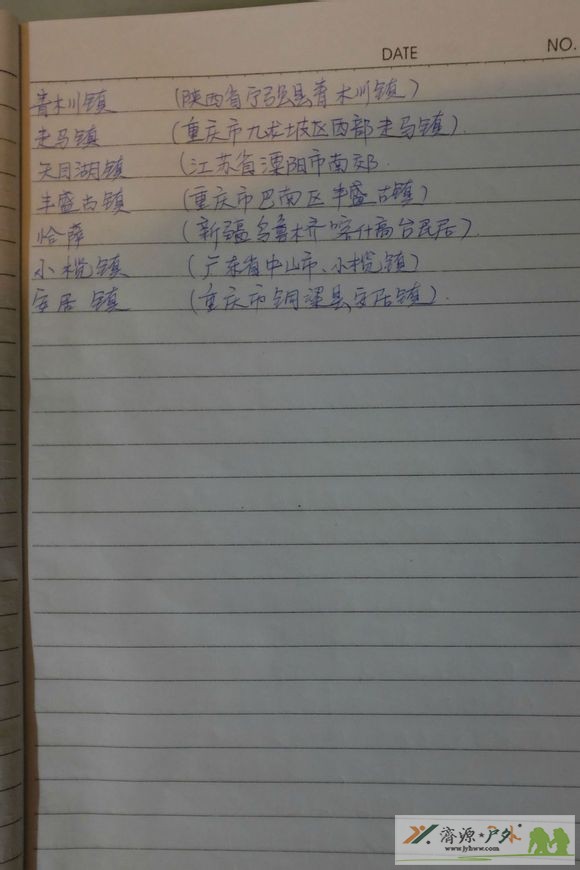 DATE NO.
青木川镇 (陕西省宁强县青木川镇)
走马镇 (重庆市九龙坡区西部走马镇).
天目湖镇 (江苏省溧阳市南郊.
丰盛古镇 (重庆市巴南区丰盛古镇)
恰萨 (新疆乌鲁木齐喀什高台民居).
小榄镇 (广东省中山市、小榄镇)
安居镇 (重庆市铜梁县安居镇).
济源·户外
www.jyhww.com